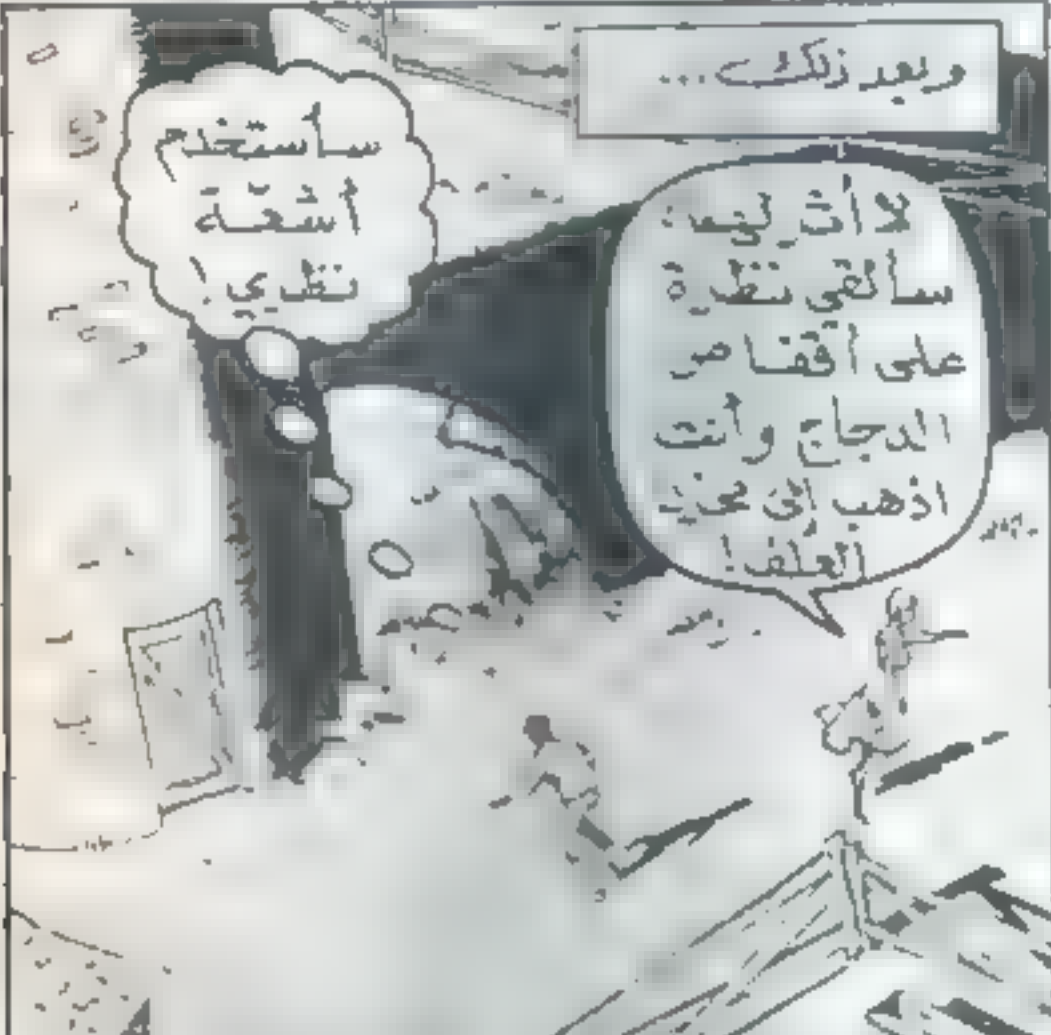 وبعد ذلك...
لا أثر لهما؛
سألقي نظرة
على أقفاص
الدجاج وأنت
اذهب إلى مخزن
العلف!
سأستخدم
أشعّة
نظري!